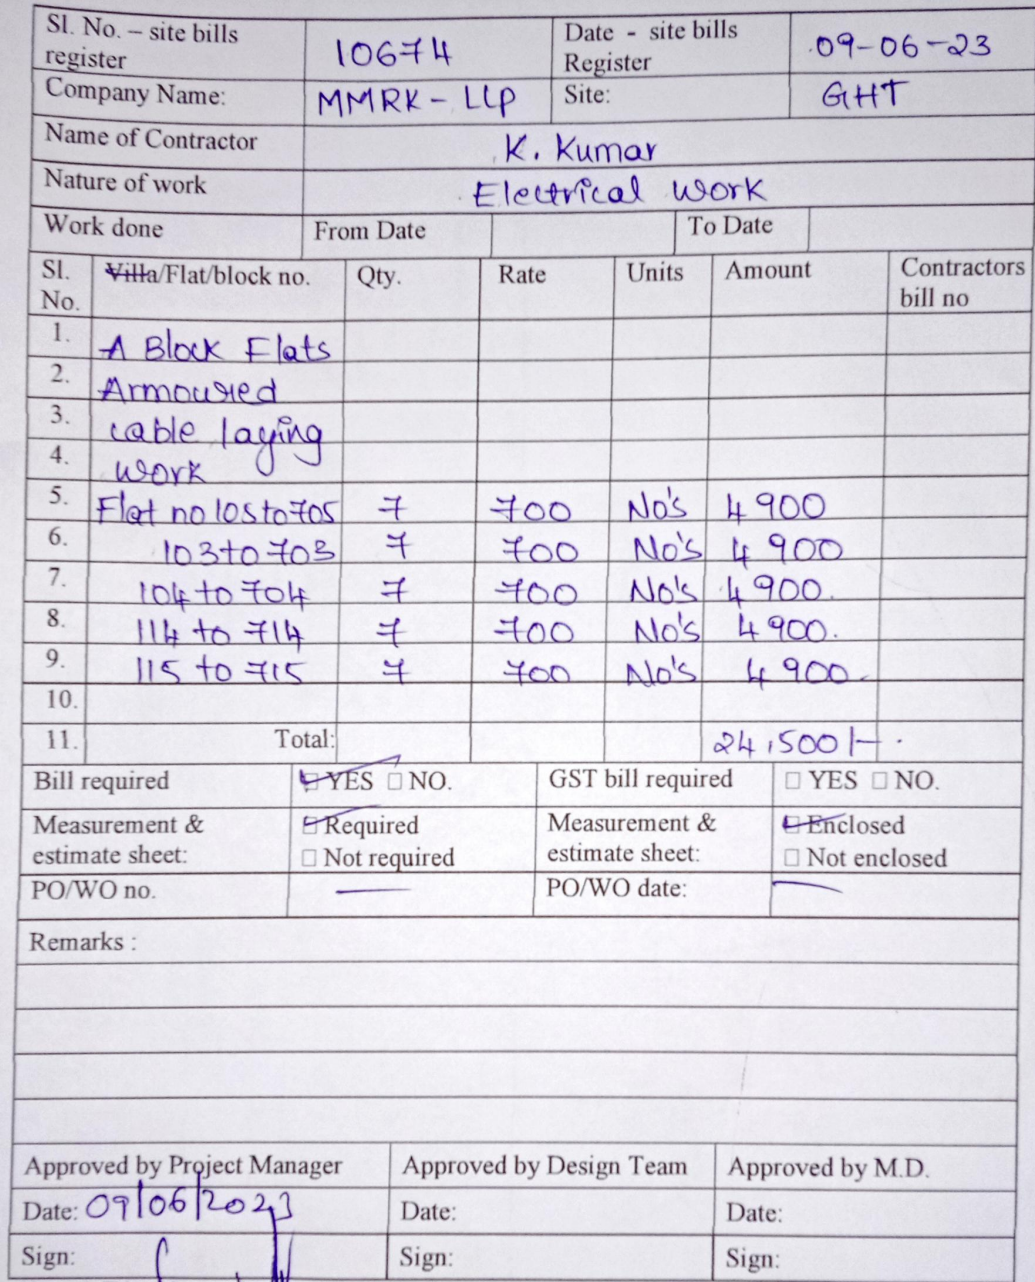 Sl. No. – site bills register 10674 Date - site bills Register 09-06-23
Company Name: MMRK - LLP Site: GHT
Name of Contractor K. Kumar
Nature of work Electrical Work
Work done From Date To Date
Sl. No. Villa/Flat/block no. Qty. Rate Units Amount Contractors bill no
1. A Block Flats
2. Armoured
3. cable laying
4. work
5. Flat no 105 to 705 7 700 No's 4900
6. 103 to 703 7 700 No's 4900
7. 104 to 704 7 700 No's 4900.
8. 114 to 714 7 700 No's 4900.
9. 115 to 715 7 700 No's 4900.
10.
11. Total: 24,500/-.
Bill required ☑ YES ☐ NO. GST bill required ☐ YES ☐ NO.
Measurement & estimate sheet: ☑ Required ☐ Not required Measurement & estimate sheet: ☑ Enclosed ☐ Not enclosed
PO/WO no. — PO/WO date: —
Remarks :
Approved by Project Manager Approved by Design Team Approved by M.D.
Date: 09/06/2023 Date: Date:
Sign: Sign: Sign: